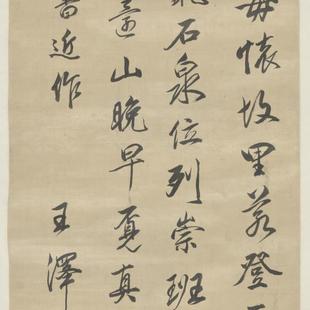 毋懷故里若登
石泉位列崇班
臺山晚早覓真
書近作
王澤